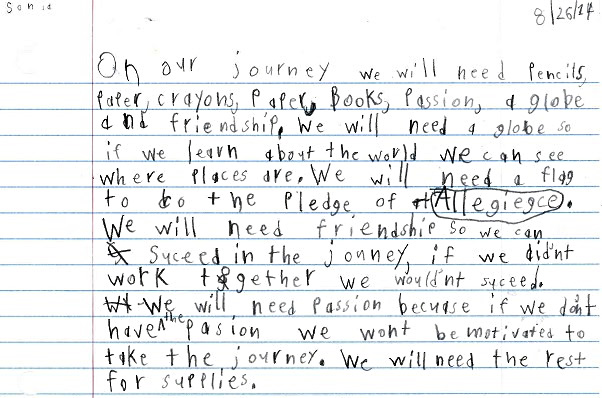 Sonia
8/26/14
On our journey we will need pencils,
paper, crayons, paper, Books, passion, a globe
and friendship. We will need a globe so
if we learn about the world we can see
where places are. We will need a flag
to do the pledge of Allegiegce.
We will need friendship so we can
Syceed in the jouney, if we did'nt
work together we would'nt syceed.
We will need passion becuase if we don't
have the pasion we wont be motivated to
take the journey. We will need the rest
for supplies.